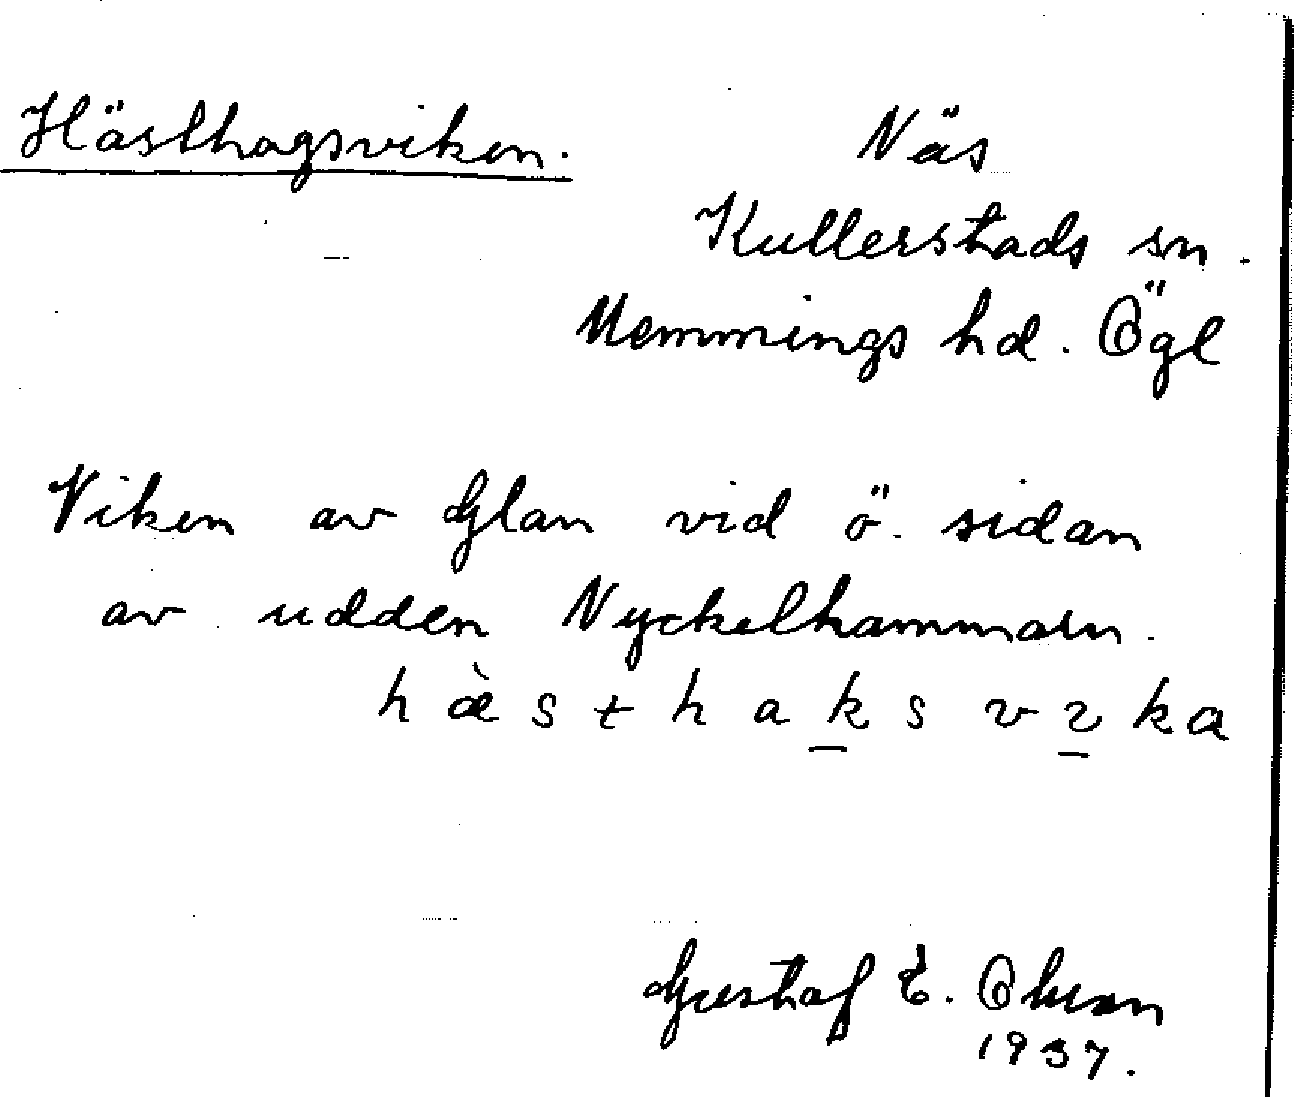 Hästhagsviken.
Näs
Kullerstads sn.
Memmings hd. Ögl
Viken av Glan vid ö. sidan
av udden Nyckelhammarn.
hὰsthaksvıka
Gustaf E. Olsson
1937.